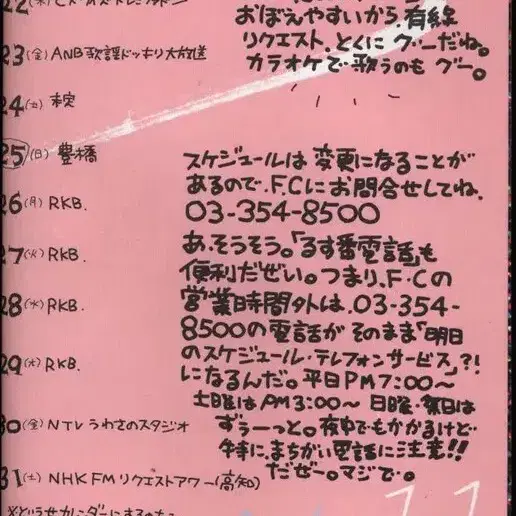 22(木)
23(金)ANB歌謡ドッキリ大放送
24(土)未定
25(日)豊橋
26(月)RKB.
27(火)RKB.
28(水)RKB.
29(木)RKB.
30(金)NTVうわさのスタジオ
31(土)NHK FMリクエストアワー(高知)
おぼえやすいから、有線
リクエスト、とくにグーだね。
カラオケで歌うのもグー。
スケジュールは変更になることが
あるので、F.Cにお問合せしてね。
03-354-8500
あ、そうそう。「るす番電話」も
便利だぜい。つまり、F・Cの
営業時間外は、03-354-
8500の電話がそのまま「明日
のスケジュール・テレフォンサービス」?!
になるんだ。平日PM7:00〜
土曜はPM3:00〜 日曜・祭日は
ずぅーっと。夜中でもかかるけど
特に、まちがい電話に注意!!
だぜー。マジで。
11